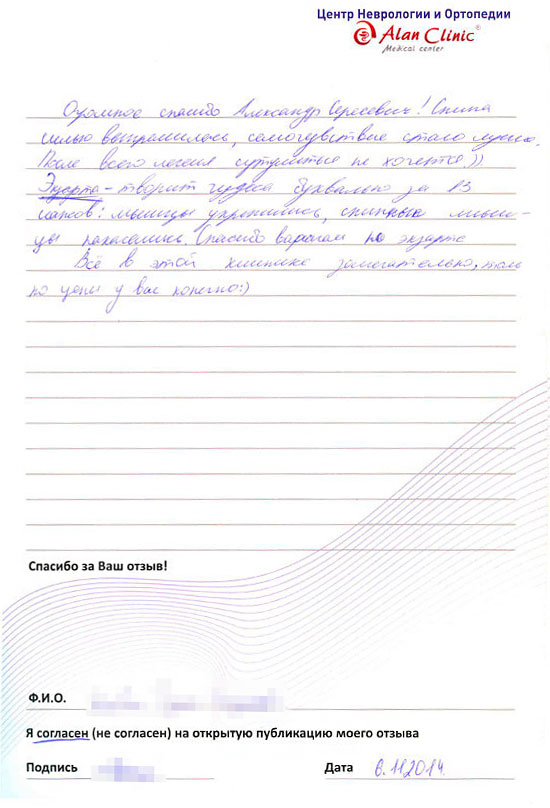 Центр Неврологии и Ортопедии
Alan Clinic
Medical center
Огромное спасибо Александр Сергеевич! Спина
выпрямилась, самочувствие стало лучше.
После всего лечения сутулиться не хочется))
Экзарта - творит чудеса буквально за 13
мышцы укрепились, спинные мыш-
цы накачались. Спасибо врачам по экзарте
Всё в этой клинике замечательно, толь
ко цены у вас конечно:)
Спасибо за Ваш отзыв!
Ф.И.О.
Я согласен (не согласен) на открытую публикацию моего отзыва
Подпись Дата 6.11.2014